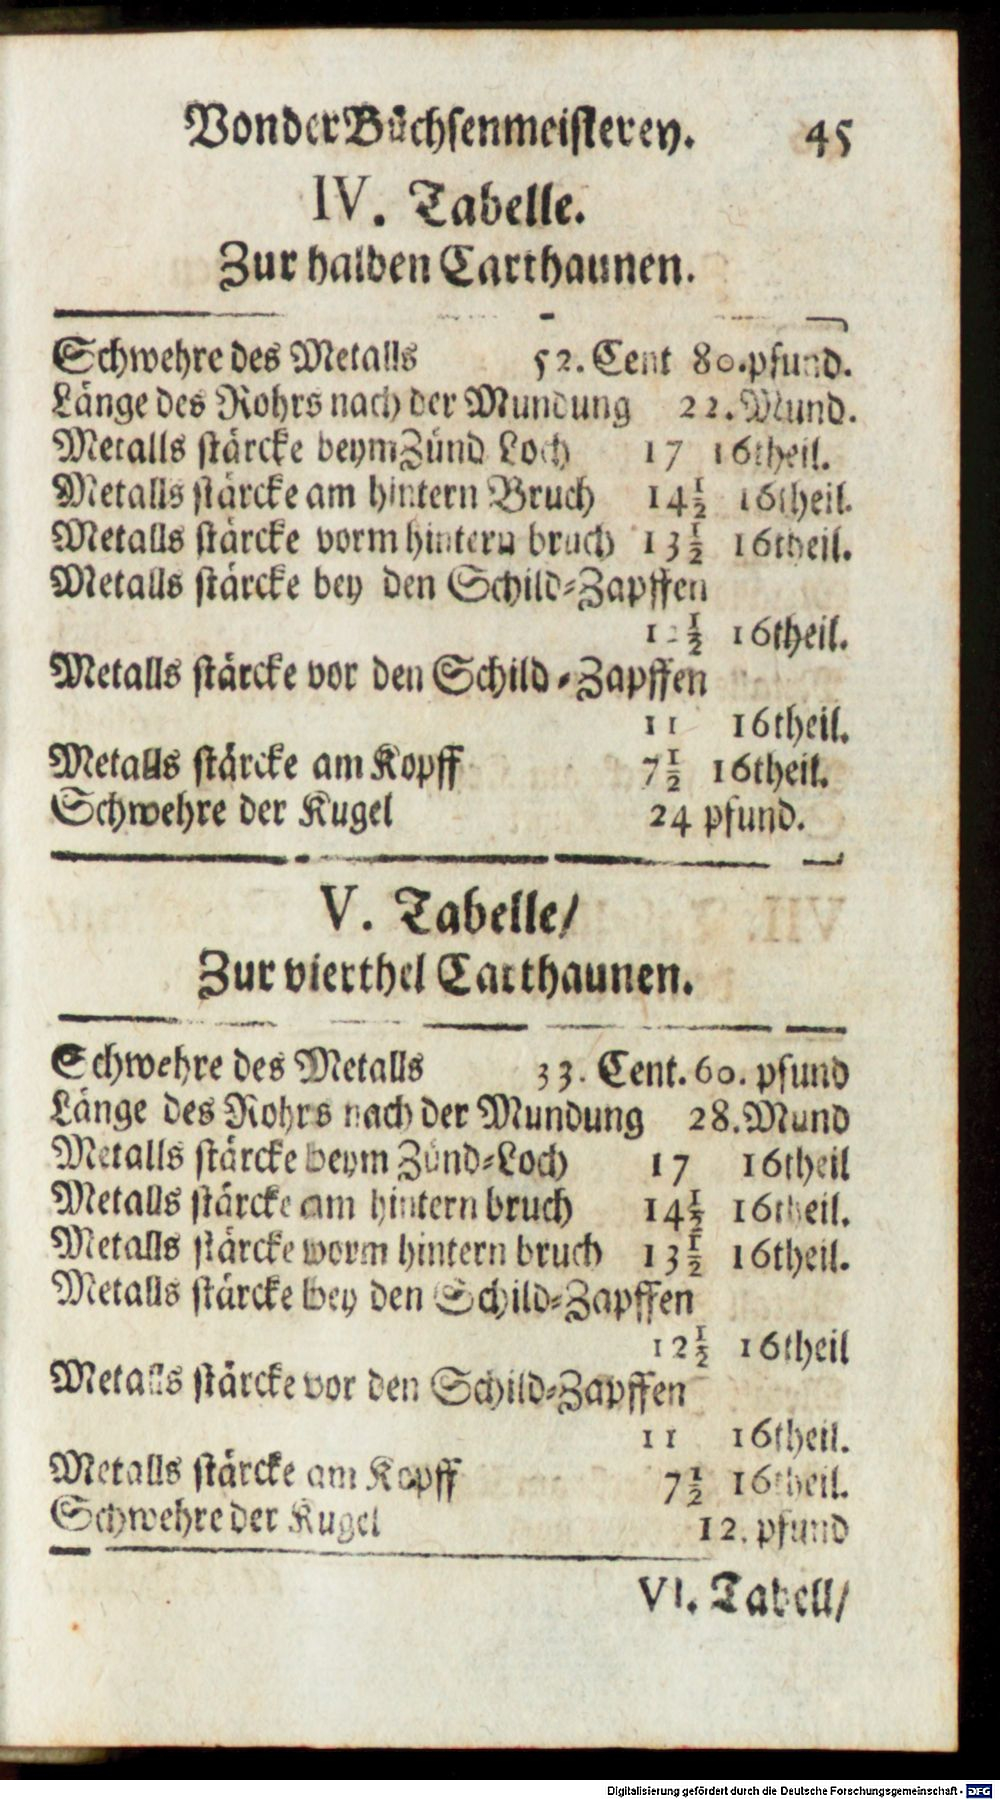 Von der Büchsenmeisterey. 45
IV. Tabelle.
Zur halben Carthaunen.
Schwehre des Metalls 52. Cent 80. pfund.
Länge des Rohrs nach der Mundung 22. Mund.
Metalls stärcke beym Zünd Loch 17 16theil.
Metalls stärcke am hintern Bruch 14½ 16theil.
Metalls stärcke vorm hintern bruch 13½ 16theil.
Metalls stärcke bey den Schild-Zapffen
12½ 16theil.
Metalls stärcke vor den Schild-Zapffen
11 16theil.
Metalls stärcke am Kopff 7½ 16theil.
Schwehre der Kugel 24 pfund.
V. Tabelle/
Zur vierthel Carthaunen.
Schwehre des Metalls 33. Cent. 60. pfund
Länge des Rohrs nach der Mundung 28. Mund
Metalls stärcke beym Zünd-Loch 17 16theil
Metalls stärcke am hintern bruch 14½ 16theil.
Metalls stärcke vorm hintern bruch 13½ 16theil.
Metalls stärcke bey den Schild-Zapffen
12½ 16theil
Metalls stärcke vor den Schild-Zapffen
11 16theil.
Metalls stärcke am Kopff 7½ 16theil.
Schwehre der Kugel 12. pfund
VI. Tabell/
Digitalisierung gefördert durch die Deutsche Forschungsgemeinschaft - DFG